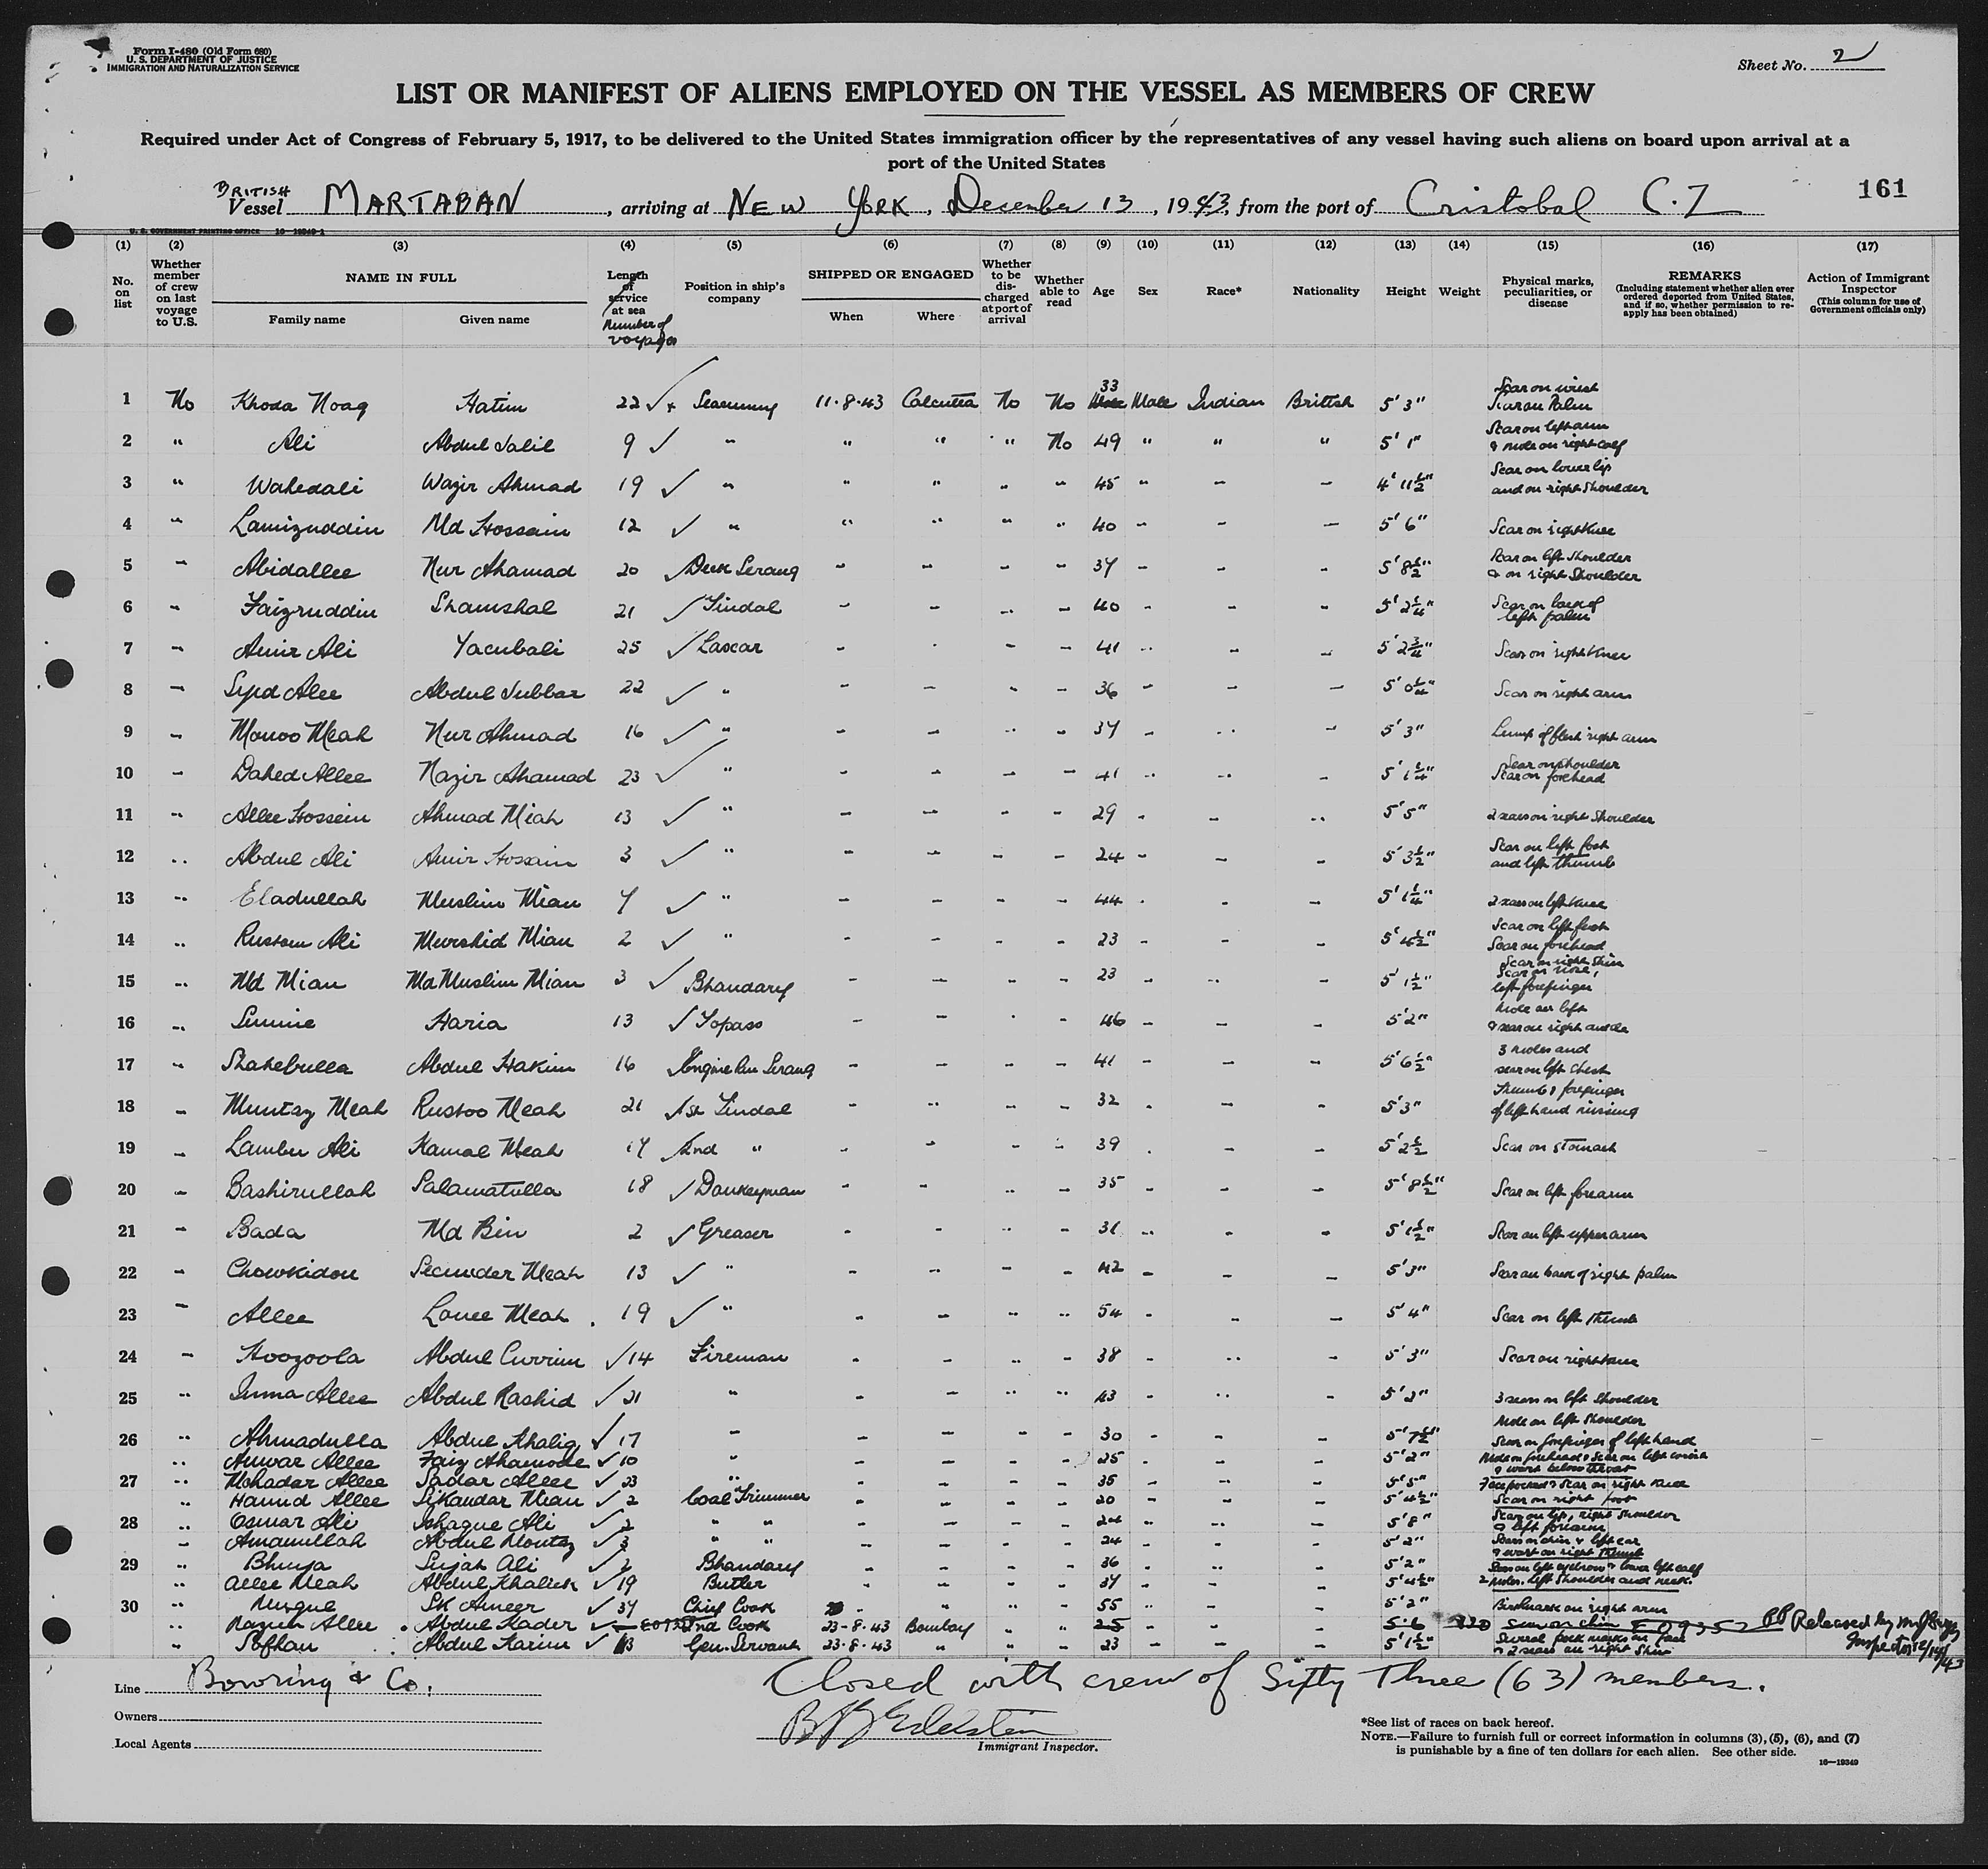 Form I-480 (Old Form 680)
U. S. DEPARTMENT OF JUSTICE
IMMIGRATION AND NATURALIZATION SERVICE
Sheet No. 2
LIST OR MANIFEST OF ALIENS EMPLOYED ON THE VESSEL AS MEMBERS OF CREW
Required under Act of Congress of February 5, 1917, to be delivered to the United States immigration officer by the representatives of any vessel having such aliens on board upon arrival at a
port of the United States
BRITISH
Vessel MARTABAN, arriving at NEW YORK, December 13, 1943, from the port of Cristobal C.Z
161
U. S. GOVERNMENT PRINTING OFFICE 16-19349-1
(1) (2) (3) (4) (5) (6) (7) (8) (9) (10) (11) (12) (13) (14) (15) (16) (17)
No. on list
Whether member of crew on last voyage to U.S.
NAME IN FULL
Family name Given name
Length of service at sea
Number of voyages
Position in ship's company
SHIPPED OR ENGAGED
When Where
Whether to be discharged at port of arrival
Whether able to read
Age Sex Race* Nationality Height Weight
Physical marks, peculiarities, or disease
REMARKS
(Including statement whether alien ever ordered deported from United States, and if so, whether permission to reapply has been obtained)
Action of Immigrant Inspector
(This column for use of Government officials only)
1 No Khoda Noaq Hatim 22 11-8-43 Calcutta No No 33 Male Indian British 5' 3" Scar on wrist Scar on Palm
2 " Ali Abdul Jalil 9 " " " " No 49 " " " 5' 1" Scar on left arm & mole on right calf
3 " Wahedali Wazir Ahmad 19 " " " " " 45 " - - 4' 11½" Scar on lower lip and on right shoulder
4 " Lamizuddin Md Hossain 12 " " " " " 40 - - - 5' 6" Scar on right knee
5 - Abidallee Nur Ahamad 20 Deck Serang - - - - 37 - - - 5' 8½" Scar on left shoulder & on right shoulder
6 - Faizruddin Shamshal 21 Tindal - - - - 40 - - - 5' 2¼" Scar on back of left palm
7 - Amir Ali Yacubali 25 Lascar - - - - 41 - - - 5' 2¾" Scar on right knee
8 - Syed Alee Abdul Jubbar 22 " - - - - 36 - - - 5' 0¼" Scar on right arm
9 - Monoo Meah Nur Ahmad 16 " - - - - 37 - - - 5' 3" Lump of flesh right arm
10 - Dahed Allee Nazir Ahamad 23 " - - - - 41 - - - 5' 1¼" Scar on shoulder Scar on forehead
11 - Allee Hossein Ahmad Miah 13 " - - - - 29 - - - 5' 5" 2 scars on right shoulder
12 - Abdul Ali Amir Hossain 3 " - - - - 24 - - - 5' 3½" Scar on left foot and left thumb
13 - Eladullah Muslim Mian 7 " - - - - 44 - - - 5' 1¼" 2 scars on left knee
14 - Rustom Ali Murshid Mian 2 " - - - - 23 - - - 5' 4½" Scar on left foot Scar on forehead
15 - Md Mian Md Muslim Mian 3 Bhandary - - - - 23 - - - 5' 1½" Scar on right shin Scar on nose, left forefinger
16 - Haria 13 Topass - - - - 46 - - - 5' 2" mole on left & scar on right ankle
17 - Shahebulla Abdul Hakim 16 Engine Rm Serang - - - - 41 - - - 5' 6½" 3 moles and scar on left chest
18 - Muntaz Meah Rustoo Meah 21 1st Tindal - - - - 32 - - - 5' 3" Thumb & forefinger of left hand missing
19 - Lambu Ali Kamal Meah 17 2nd " - - - - 39 - - - 5' 2½ Scar on stomach
20 - Bashirullah Salamatulla 18 Donkeyman - - - - 35 - - - 5' 8½" Scar on left forearm
21 - Bada Md Bin 2 Greaser - - - - 31 - - - 5' 1½" Scar on left upper arm
22 - Chowkidou Secunder Meah 13 " - - - - 42 - - - 5' 3" Scar on back of right palm
23 - Allee Lonee Meah 19 " - - - - 54 - - - 5' 4" Scar on left thumb
24 - Hoozoola Abdul Currim 14 Fireman - - - - 38 - - - 5' 3" Scar on right knee
25 - Inma Allee Abdul Rashid 21 " - - - - 43 - - - 5' 2" 3 scars on left shoulder
26 - Ahmadulla Abdul Khaliq 17 " - - - - 30 - - - 5' 7½" Mole on left shoulder Scar on forefinger of left hand
- Anwar Allee Faiz Ahamode 10 " - - - - 25 - - - 5' 2" Mole on forehead & Scar on left & wart below throat
27 - Mohadar Allee Sadar Allee 23 " - - - - 35 - - - 5' 5" Scar on right knee
- Hamid Allee Sikandar Mian 2 Coal Trimmer - - - - 20 - - - 5' 4½" Scar on right foot
28 - Osmar Ali Ishaque Ali 2 " " - - - - 24 - - - 5' 8" Scar on lip, right shoulder & left forearm
- Amanullah Abdul Montaz 3 " - - - - 24 - - - 5' 2" Scars on chin & left ear & wart on right thumb
29 - Bhuya Sujah Ali 2 Bhandary - - - - 36 - - - 5' 2" Scar on left eyebrow & lower left calf
- Allee Meah Abdul Khalick 19 Butler - - - - 37 - - - 5' 4½" 2 moles. Left shoulder and neck.
30 - SK Ameer 37 Chief Cook - - - - 55 - - - 5' 2" Birthmark on right arm
- Nazim Allee Abdul Kader 2nd Cook 23-8-43 Bombay " " 25 - - - 5-6 120 Scar on chin Released by
" Sofhan Abdul Karim 13 Gen. Servant 23-8-43 " " " 23 - - - 5' 1½" Several pock marks on face & 2 scars on right shin Inspector 12/14/43
Line Bowring & Co.
Owners
Local Agents
Closed with crew of Sixty Three (63) members.
Edelstein
Immigrant Inspector.
*See list of races on back hereof.
NOTE.—Failure to furnish full or correct information in columns (3), (5), (6), and (7)
is punishable by a fine of ten dollars for each alien. See other side.
16—19349